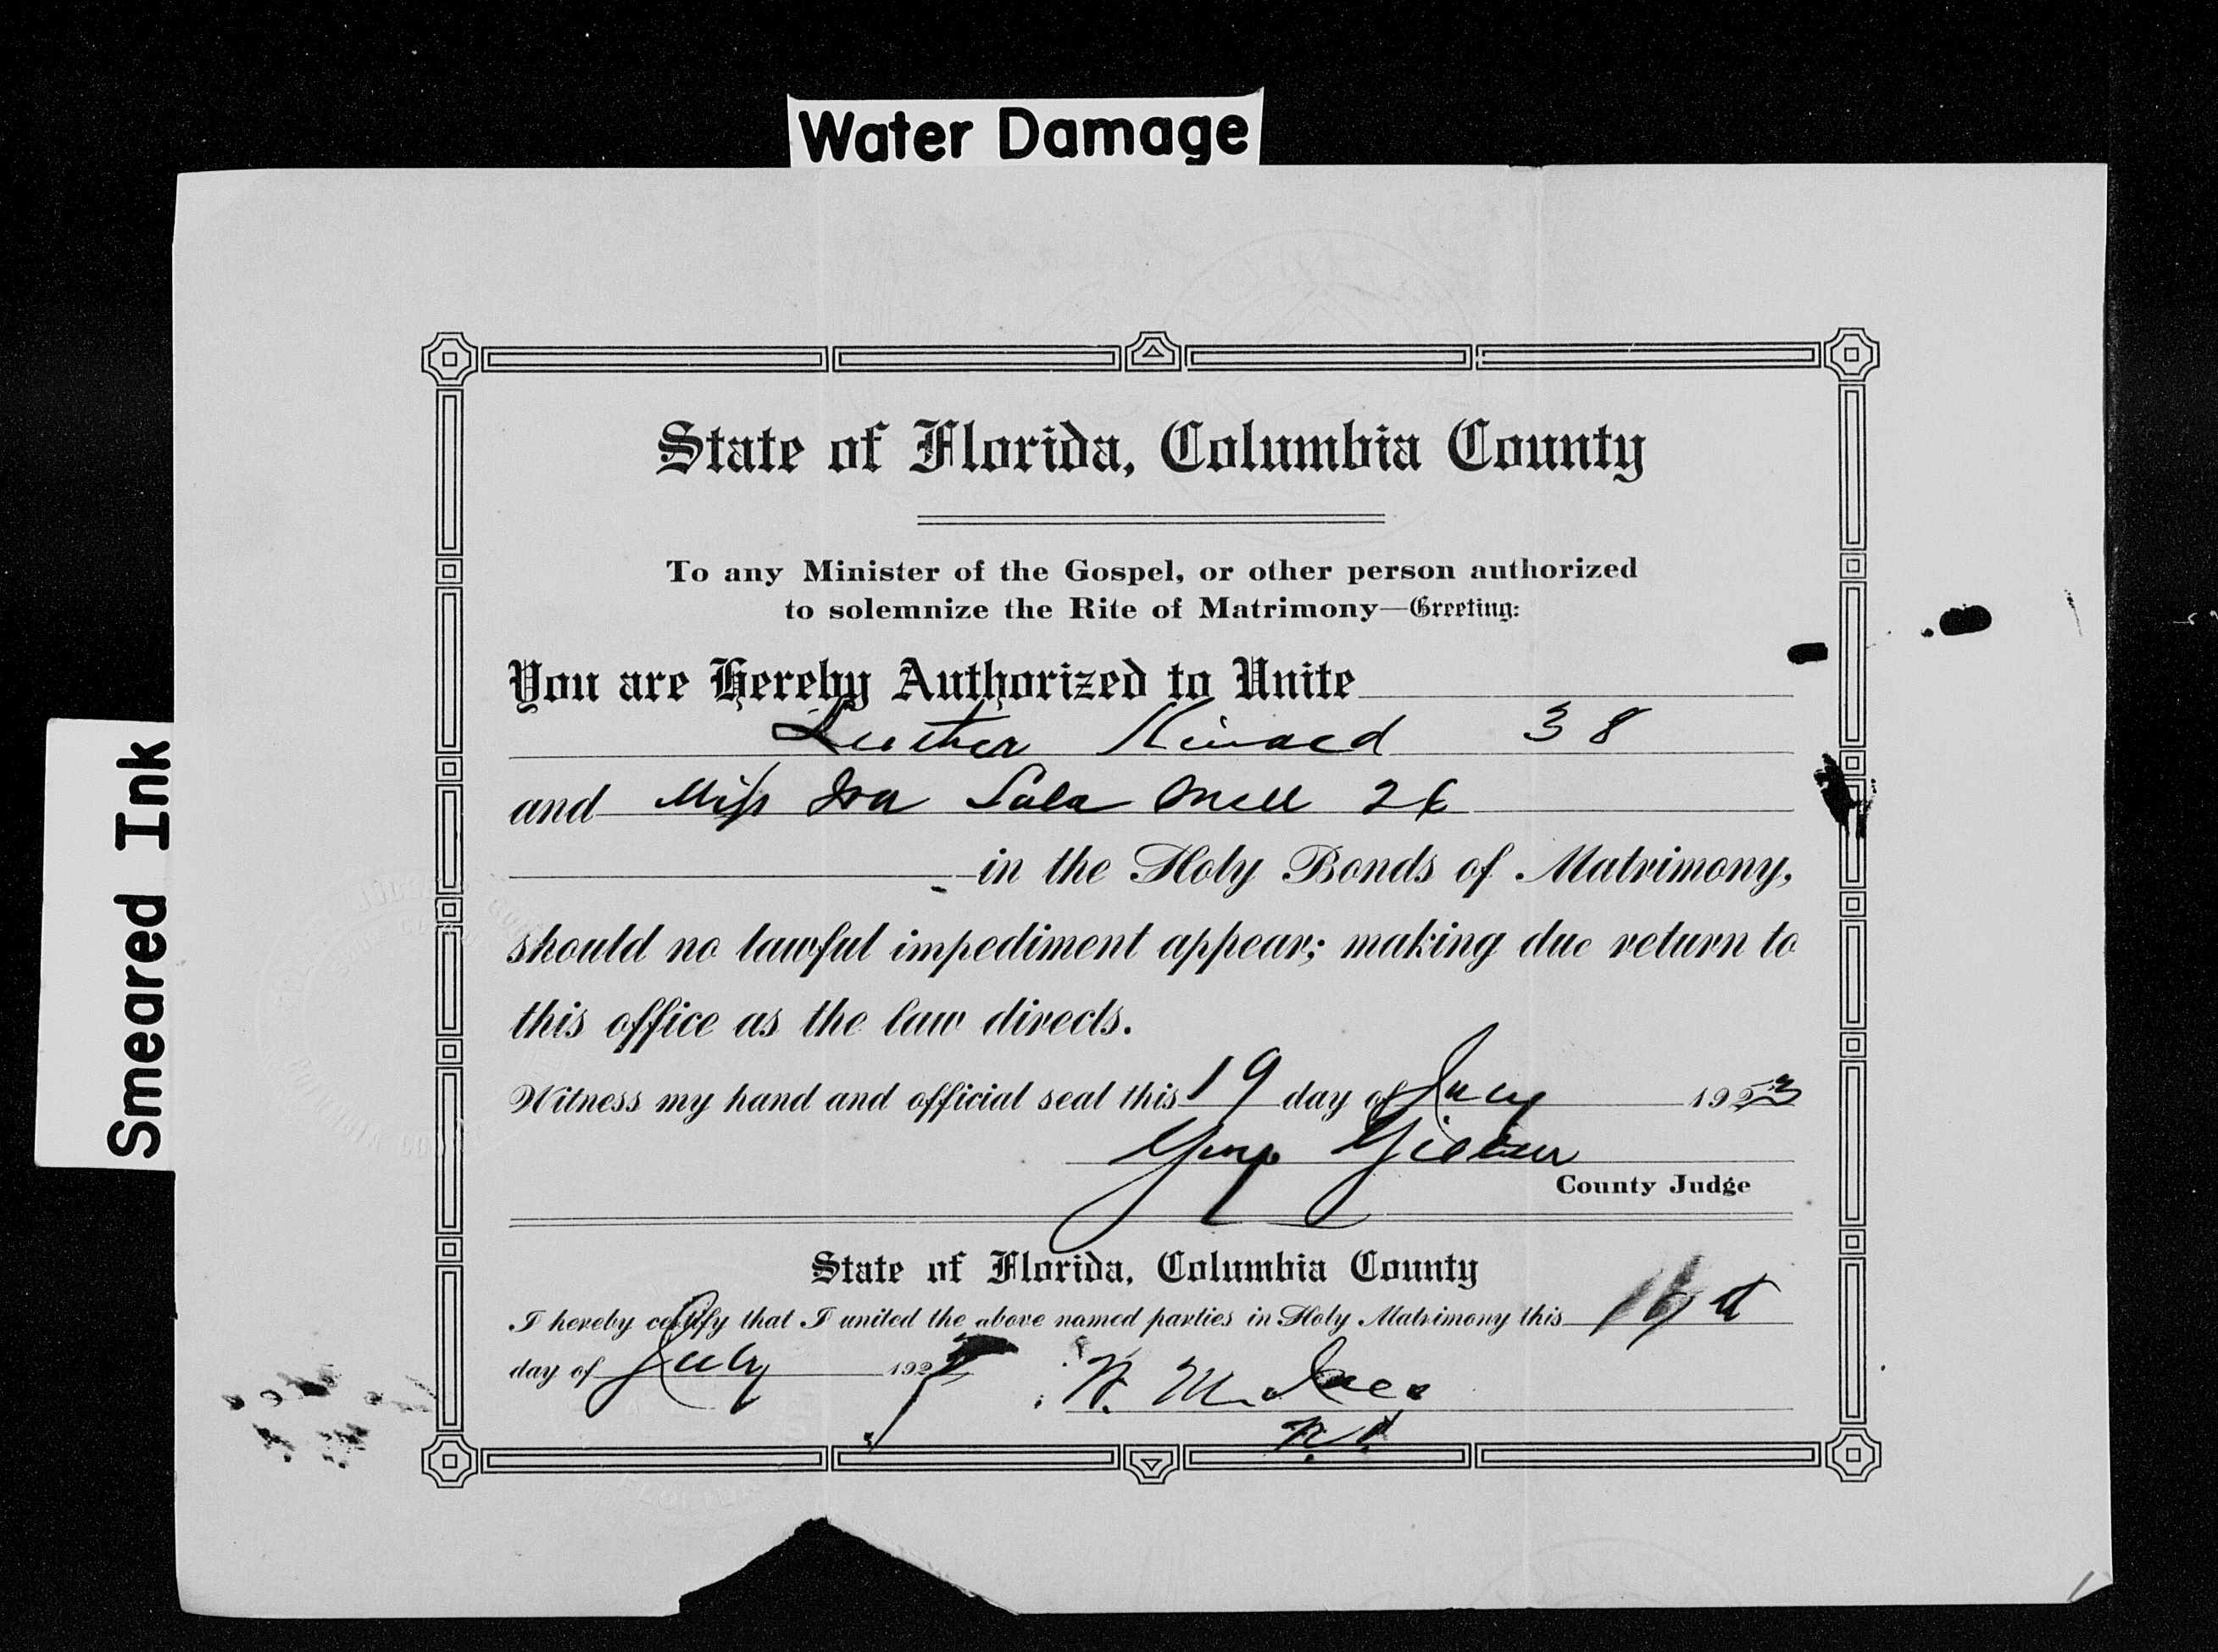 Water Damage
Smeared Ink
State of Florida, Columbia County
To any Minister of the Gospel, or other person authorized
to solemnize the Rite of Matrimony—Greeting:
You are Hereby Authorized to Unite
Luther Kinard 38
and Miss Iva Lula Mell 26
in the Holy Bonds of Matrimony,
should no lawful impediment appear; making due return to
this office as the law directs.
Witness my hand and official seal this 19 day of July 1923
County Judge
State of Florida, Columbia County
I hereby certify that I united the above named parties in Holy Matrimony this
day of July 192